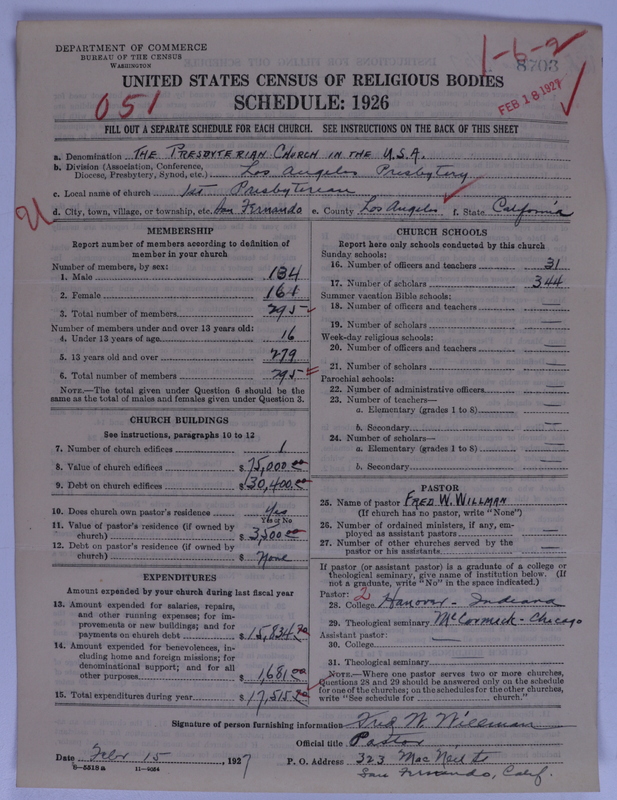 DEPARTMENT OF COMMERCE
BUREAU OF THE CENSUS
WASHINGTON
1-6-2
8703
UNITED STATES CENSUS OF RELIGIOUS BODIES
051
SCHEDULE: 1926
FEB 18 1927
FILL OUT A SEPARATE SCHEDULE FOR EACH CHURCH. SEE INSTRUCTIONS ON THE BACK OF THIS SHEET
a. Denomination THE PRESBYTERIAN CHURCH IN THE U.S.A.
b. Division (Association, Conference,
Diocese, Presbytery, Synod, etc.) Los Angeles Presbytery
c. Local name of church 1st Presbyterian
d. City, town, village, or township, etc. San Fernando e. County Los Angeles f. State California
MEMBERSHIP
Report number of members according to definition of
member in your church
Number of members, by sex:
1. Male 134
2. Female 161
3. Total number of members 295
Number of members under and over 13 years old:
4. Under 13 years of age 16
5. 13 years old and over 279
6. Total number of members 295
NOTE.—The total given under Question 6 should be the
same as the total of males and females given under Question 3.
CHURCH BUILDINGS
See instructions, paragraphs 10 to 12
7. Number of church edifices 1
8. Value of church edifices $ 75,000.00
9. Debt on church edifices $ 30,400.00
10. Does church own pastor's residence Yes
Yes or No
11. Value of pastor's residence (if owned by
church) $ 3,500.00
12. Debt on pastor's residence (if owned by
church) $ None
EXPENDITURES
Amount expended by your church during last fiscal year
13. Amount expended for salaries, repairs,
and other running expenses; for im-
provements or new buildings; and for
payments on church debt $ 15,834.20
14. Amount expended for benevolences, in-
cluding home and foreign missions; for
denominational support; and for all
other purposes 1681.00
15. Total expenditures during year $ 17,515.20
CHURCH SCHOOLS
Report here only schools conducted by this church
Sunday schools:
16. Number of officers and teachers 31
17. Number of scholars 344
Summer vacation Bible schools:
18. Number of officers and teachers —
19. Number of scholars —
Week-day religious schools:
20. Number of officers and teachers —
21. Number of scholars —
Parochial schools:
22. Number of administrative officers —
23. Number of teachers—
a. Elementary (grades 1 to 8) —
b. Secondary —
24. Number of scholars—
a. Elementary (grades 1 to 8) —
b. Secondary —
PASTOR
25. Name of pastor FRED W. WILLMAN
(If church has no pastor, write "None")
26. Number of ordained ministers, if any, em-
ployed as assistant pastors —
27. Number of other churches served by the
pastor or his assistants —
If pastor (or assistant pastor) is a graduate of a college or
theological seminary, give name of institution below. (If
not a graduate, write "No" in the space indicated.)
Pastor: 2
28. College Hanover - Indiana
29. Theological seminary McCormick - Chicago
Assistant pastor:
30. College —
31. Theological seminary —
NOTE.—Where one pastor serves two or more churches,
Questions 28 and 29 should be answered only on the schedule
for one of the churches; on the schedules for the other churches,
write "See schedule for church."
Signature of person furnishing information Fred W. Willman
Official title Pastor
Date Feb 15, 1927 P. O. Address 323 Mac Neil St
San Fernando, Calif.
8—5518 a 11—9064